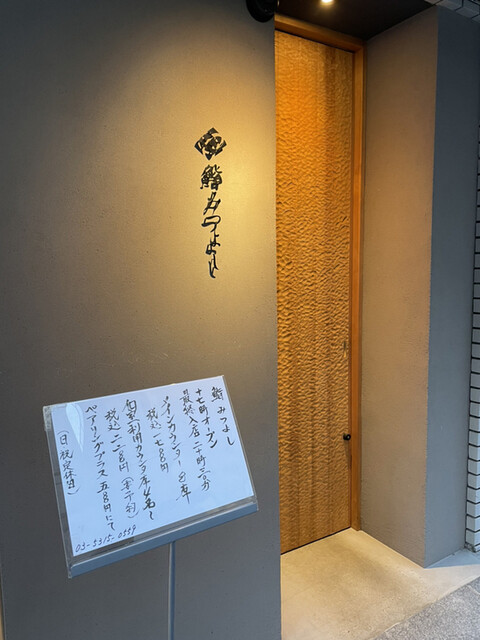 鮨みつよし
鮨 みつよし
十七時オープン
最終入店二十時三〇分
メインカウンター8席
税込一七、八〇〇円
個室利用カウンター席4名〜
税込二二、〇〇〇円(要予約)
ペアリングプラス
(日・祝定休日)
03-5315-0559